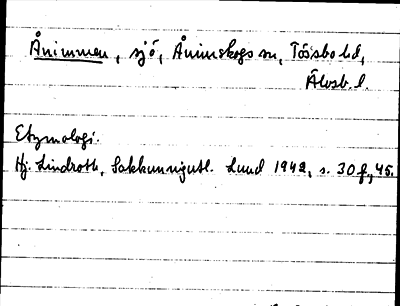 Ånimmen, sjö, Ånimskogs sn, Tössbo hd,
Älvsb. l.
Etymologi.
Hj. Lindroth, Sakkunnigutl. Lund 1942, s. 30 f., 45.